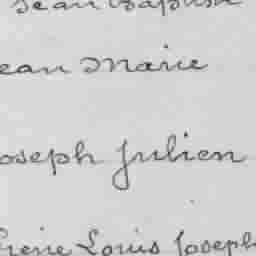 Jean Baptiste
ean Marie
oseph Julien
rene Louis Joseph